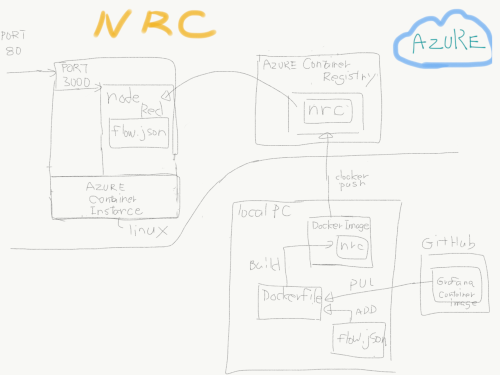 NRC
AZURE
PORT
80
PORT
3000
node
Red
flow.json
AZURE
Container
Instance
linux
AZURE Container
Registry
nrc
docker
push
local PC
Docker Image
nrc
Build
Dockerfile
PUL
ADD
flow.json
GitHub
Grafana
Container
Image